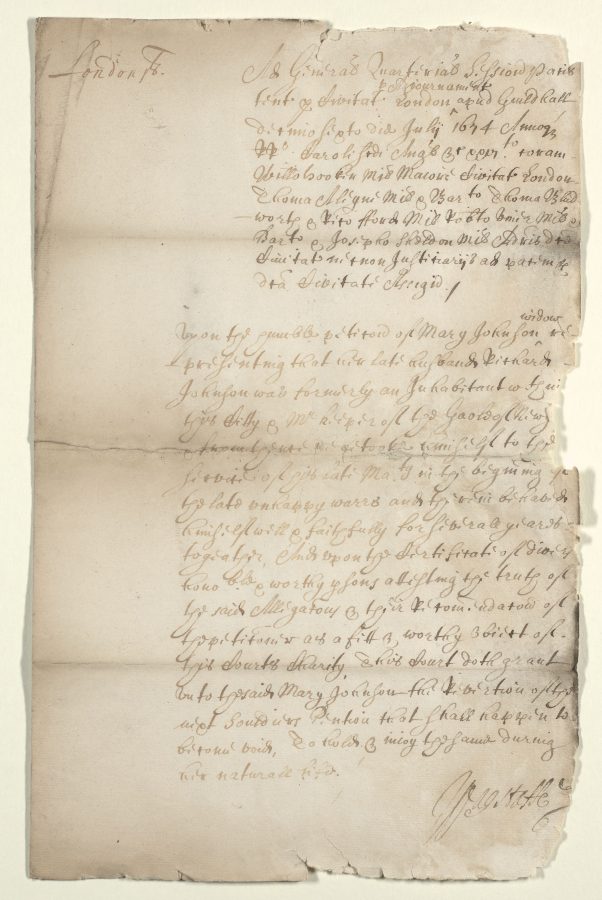 London ss.
Ad General Quarterial Session Pacis
tent p Civitat London apud Guildhall
p Adjournament
decimo sexto die July 1674 Anno
Caroli scdi Angl &c coram
Willo hooker Mil Maiore Civitat London
Thoma Mil & Bar Thoma Blud
worth & Mil Robto Mil &
Bar & Josepho Sheldon Mil
Civitat necnon Justiciarijs ad pacem
dca Civitate Assign
Upon the humble peticon of Mary Johnson widow re
presenting that her late husband Richard
Johnson was formerly an Inhabitant within
this Citty & keeper of the
& from thence betooke himself to the
service of his late Maty in the beginning of
the late unhappy warrs and therein behaved
himself well & faithfully for severall yeares
togeather, And upon the Certificate of divers
hono ble & worthy psons attesting the truth of
the said Allegacons & their Recomendacon of
the peticoner as a fitt & worthy obiect of
this Courts Charity This Court doth grant
unto the said Mary Johnson the Revertion of the
next Souldiers Pention that shall happen to
become void, To hold & inioy the same during
her naturall life.